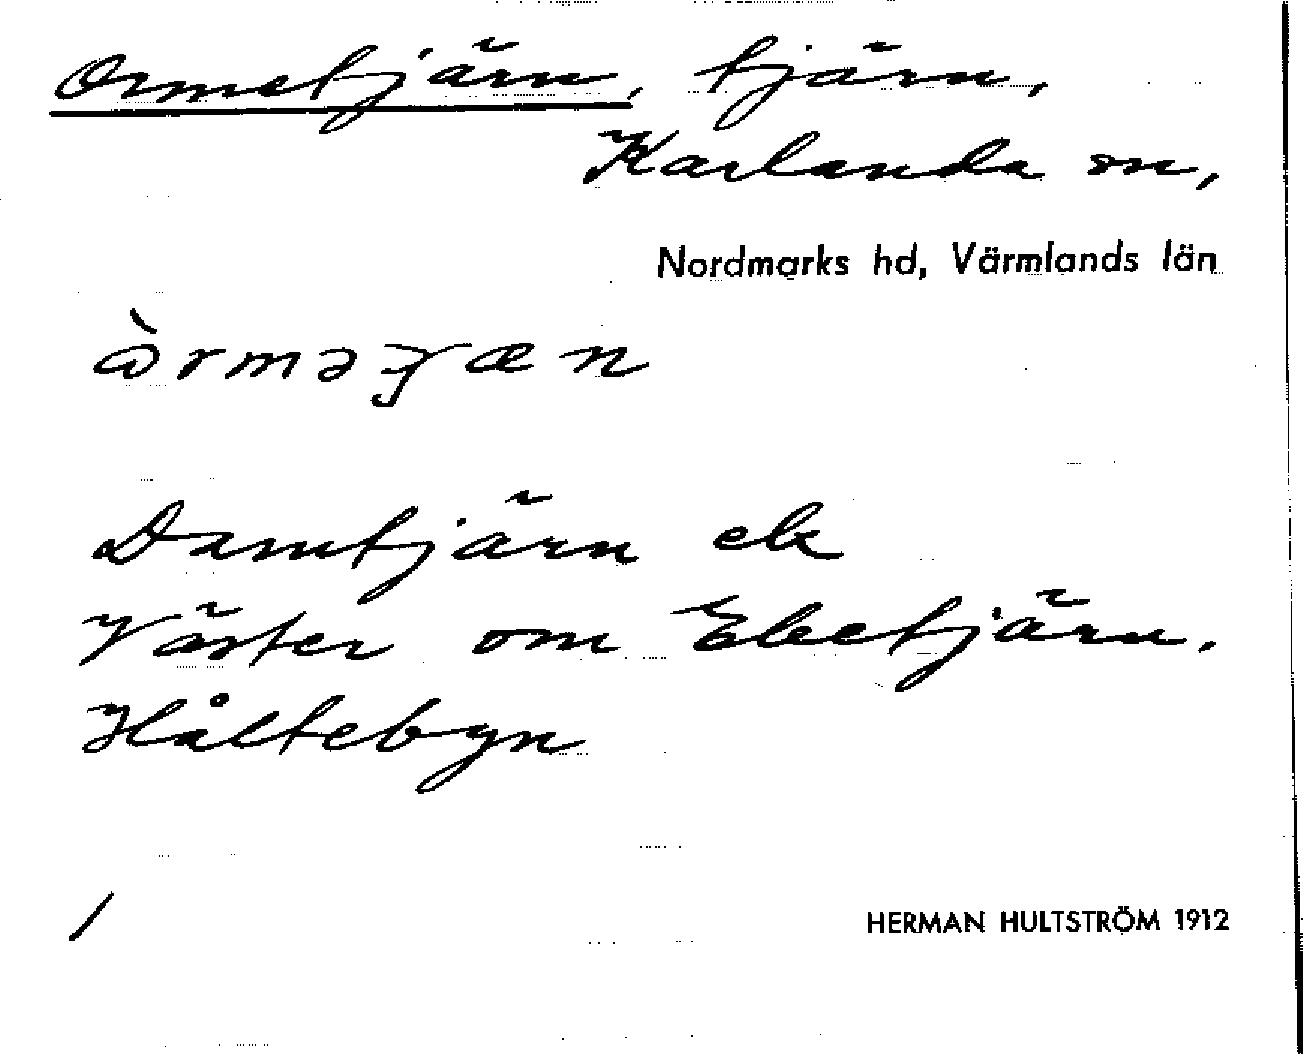 Ormetjärn, tjärn,
Karlanda sn,
Nordmarks hd, Värmlands län
Damtjärn el
Väster om Eketjärn.
Håltebyn
/
HERMAN HULTSTRÖM 1912